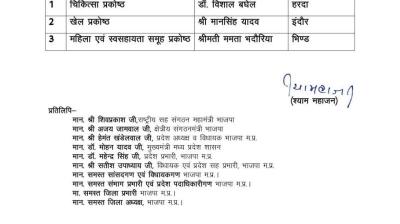 1 चिकित्सा प्रकोष्ठ डॉ. विशाल बघेल हरदा
2 खेल प्रकोष्ठ श्री मानसिंह यादव इंदौर
3 महिला एवं स्वसहायता समूह प्रकोष्ठ श्रीमती ममता भदौरिया भिण्ड
(श्याम महाजन)
प्रतिलिपि-
मान. श्री शिवप्रकाश जी,राष्ट्रीय सह संगठन महामंत्री भाजपा
मान. श्री अजय जामवाल जी, क्षेत्रीय संगठनमंत्री भाजपा
मान. श्री हेमंत खंडेलवाल जी, प्रदेश अध्यक्ष व विधायक भाजपा म.प्र.
मान. डॉ. मोहन यादव जी, मुख्यमंत्री मध्य प्रदेश शासन
मान. डॉ. महेन्द्र सिंह जी, प्रदेश प्रभारी, भाजपा म.प्र.
मान. श्री सतीश उपाध्याय जी, विधायक एवं प्रदेश सह प्रभारी, भाजपा म.प्र.
मान. समस्त सांसदगण एवं विधायकगण भाजपा म.प्र.।
मान. समस्त संभाग प्रभारी एवं प्रदेश पदाधिकारीगण भाजपा म.प्र.।
मा. समस्त जिला प्रभारी भाजपा म.प्र.।
मान. समस्त जिला अध्यक्ष, भाजपा म.प्र.।